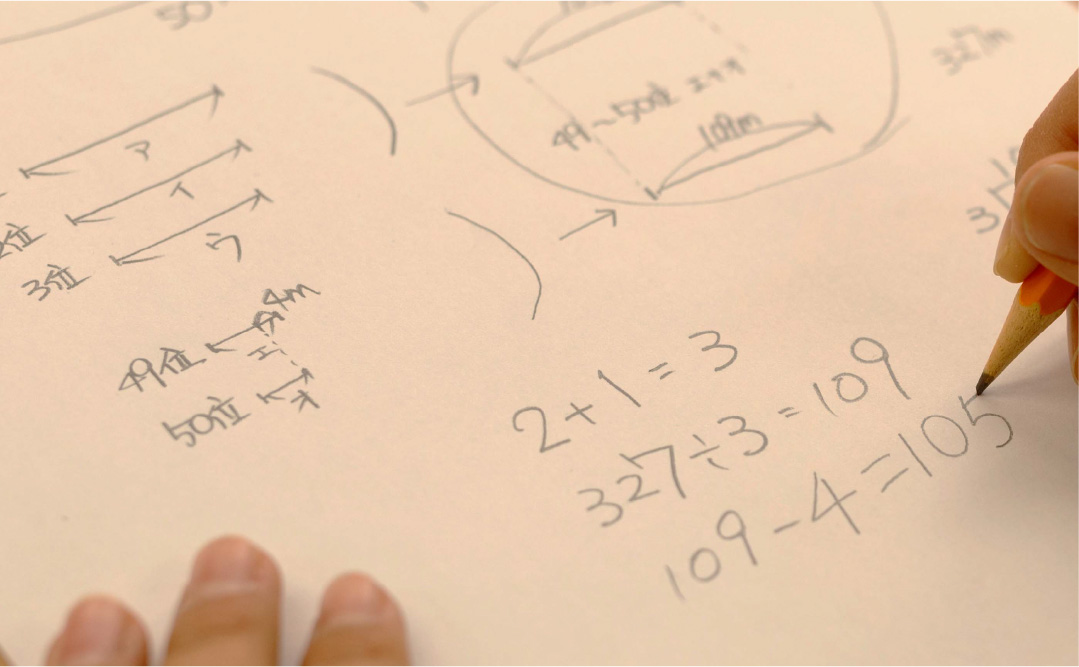 50
109m
49〜50位
327m
ア
イ
2位
ウ
3位
4m
49位
エ
50位
オ
2+1=3
327÷3=109
109-4=105